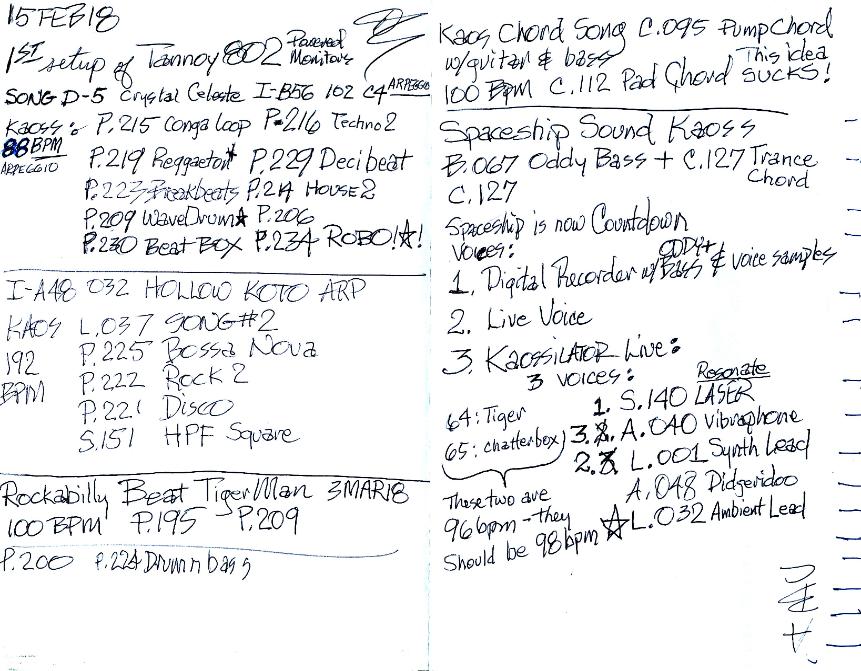 15FEB18
1ST setup of Tannoy 802 Powered Monitors
SONG D-5 Crystal Celeste I-B56 102 C4 ARPEGGIO
Kaoss: P.215 Conga Loop P.216 Techno2
88BPM
ARPEGGIO
P.219 Reggaeton P.229 Decibeat
P.223 Breakbeats P.214 HOUSE2
P.209 WaveDrum☆ P.206
P.230 Beat BOX P.234 ROBO!☆!
I-A48 032 HOLLOW KOTO ARP
KAOS L.037 SONG#2
192 P.225 Bossa Nova
BPM P.222 Rock 2
P.221 Disco
S.151 HPF Square
Rockabilly Beat TigerMan 3MAR18
100 BPM P.195 P.209
P.200 P.224 Drum n bass
Kaos Chord Song C.095 PumpChord
w/guitar & bass This idea
100 BPM C.112 Pad Chord SUCKS!
Spaceship Sound Kaoss
B.067 Oddy Bass + C.127 Trance Chord
C.127
Spaceship is now Countdown
Voices:
1. Digital Recorder w/ ODDY+ Bass & voice samples
2. Live Voice
3. KaossilATOR Live:
3 voices:
Resonate
1. S.140 LASER
3. A.040 Vibraphone
2. L.001 Synth Lead
A.048 Didgeridoo
☆L.032 Ambient Lead
64: Tiger
65: chatterbox
These two are
96bpm - they
Should be 98bpm